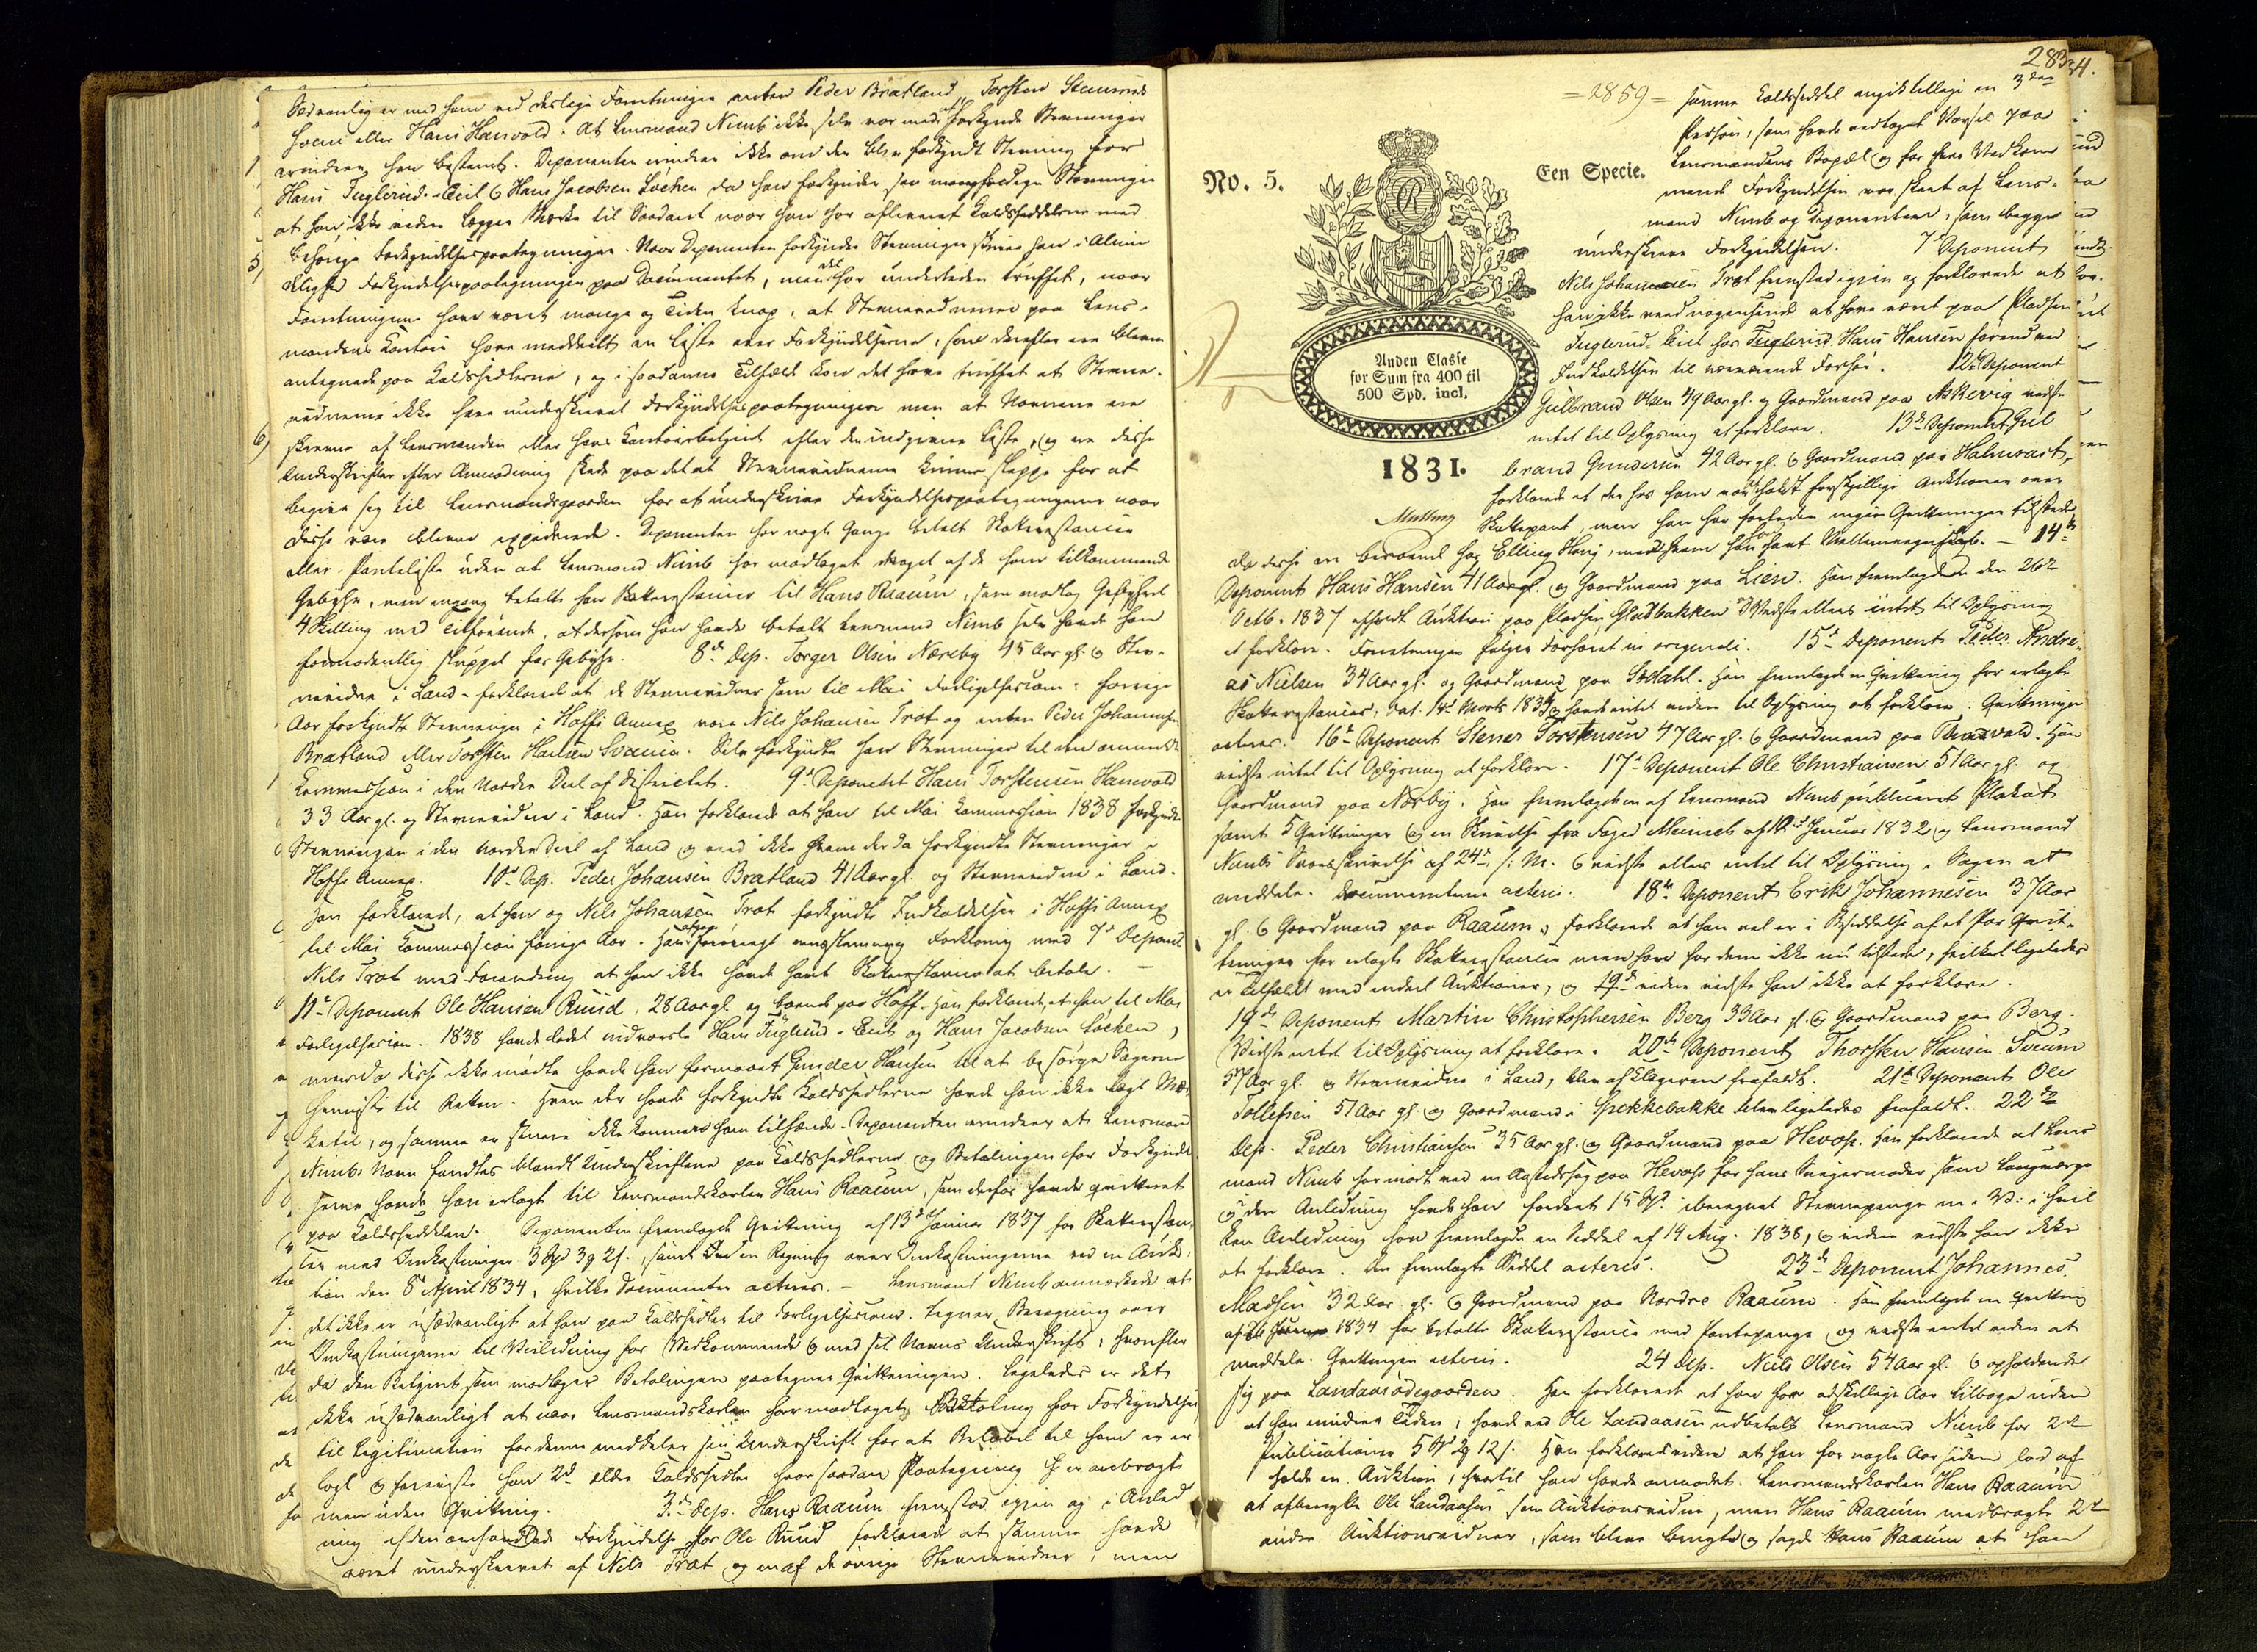 Sædvanlig er med ham ved deslige Forretninger enten Peder Bratland, Torsten Hansens
Sveen eller Hans Hanvold. At Lensmand Nimb ikke selv var med at forkynde Stevninger
erindrer han bestemt. Deponenten erindrer ikke om der blev forkyndt Stevning for
Hans Fuglerud-Eiet & Hans Jacobsen Løchen da han forkynder saa mangfoldige Stevninger
at han ikke videre lægger Mærke til Saadant naar han har afleveret Kaldsseddelerne med
behørige Forkyndelsespaategninger. Naar Deponenten forkynder Stevninger skriver han i Almin
delighed Forkyndelsespaategningen paa Documentet, men det har undertiden truffet, naar
Forretningerne have været mange og Tiden knap, at Stevnevidnerne paa Lens-
mandens Kontoir have meddeelt en Liste over Forkyndelserne, som derefter ere blevne
antegnede paa Kaldssedlerne, og i saadanne Tilfælde kan det have truffet at Stevne-
vidnerne ikke have underskrevet Forkyndelsespaategningerne men at Navnene ere
skrevne af Lensmanden eller hans Kontoirbetjent efter den indgivne Liste, og ere disse
Underskrifter efter Anmodning skede paa det at Stevnevidnerne kunne slippe for at
begive sig til Lensmandsgaarden for at underskrive Forkyndelsespaategningerne naar
disse vare blevne expederede. Deponenten har nogle Gange betalt Skatterestancer
eller Panteliste uden at Lensmand Nimb har modtaget noget af de ham tilkommende
Gebyhr, men engang betalte han Skatterestancer til Hans Raaum, som modtog Gebyhret
4 Skilling med Tilføiende, at dersom han havde betalt Lensmand Nimb selv havde han
formodentlig sluppet for Gebyhr. 8de Dep. Torger Olsen Næreby 45 Aar gl. & Stev-
nevidne i Land forklarede at de Stevnevidner som til Mai Forligelsescom: forrige
Aar forkyndte Stevninger i Hoffs Annex vare Nils Johansen Trøt og enten Peder Johannesen
Bratland eller Torsten Hansen Sveen. Selv forkyndte han Stevninger til den ommeldte
Kommission i den Nordre Deel af Districtet. 9de Deponent Hans Torstensen Hanvold
33 Aar gl. og Stevnevidne i Land. Han forklarede at han til Mai Kommission 1838 forkyndte
Stevninger i den nordre Deel af Land og veed ikke hvem der da forkyndte Stevninger i
Hoffs Annex. 10de Dep. Peder Johansen Bratland 41 Aar gl. og Stevnevidne i Land.
Han forklarede, at han og Nils Johansen Trøt forkyndte Indkaldelser i Hoffs Annex
til Mai Kommission forrige Aar. Han afgav forøvrigt eensstemmig Forklaring med 7de Deponent
Nils Trøt med Forandring at han ikke havde havt Skatterestancer at betale. –
11te Deponent Ole Hansen Ruud, 28 Aar gl. og boende paa Hoff. Han forklarede, at han til Mai
Forligelsescom. 1838 havde ladet indvarsle Hans Fuglerud-Eiet og Hans Jacobsen Løchen,
men da disse ikke mødte havde han formaaet Gunder Hansen til at besørge Sagerne
henviste til Retten. Hvem der havde forkyndt Kaldssedlerne havde han ikke lagt Mær-
ke til, og samme er senere ikke kommen ham tilhænde. Deponenten erindrer at Lensmand
Nimbs Navn fandtes blandt Underskrifterne paa Kaldssedlerne og Betalingen for Forkyndel-
serne havde han erlagt til Lensmandskarlen Hans Raaum, som derfor havde qvitteret
paa Kaldssedlen. Deponenten fremlagde Qvittering af 13de Januar 1837 for Skatterestan-
cer med Omkostninger 3 Spd 3 ₰ 21 s., samt en Regning over Omkostningerne ved en Auk-
tion den 8de April 1834, hvilke Documenter acteres. – Lensmand Nimb anmærkede at
det ikke er usædvanligt at han paa Kaldssedler til Forligelsescom. tegner Beregning over
Omkostningerne til Veiledning for Vedkommende & med sit Navns Underskrift, hvorefter
da den Betjent som modtager Betalingen paategner Qvitteringen. Ligeledes er det
ikke usædvanligt at naar Lensmandskarlen har modtaget Betaling for Forkyndelser
til Legitimation for denne meddeler sin Underskrift for at Beløbet til ham er er-
lagt & foreviste han 2de ældre Kaldssedler hvor saadan Paategning er anbragt
men uden Qvittering. 3de Dep. Hans Raaum fremstod igjen og i Anled
ning af den omhandlede Forkyndelse for Ole Ruud forklarede at samme havde
været underskrevet af Nils Trøt og en af de øvrige Stevnevidner, men
283
= 2859 =
No. 5.
Een Specie.
Anden Classe
for Sum fra 400 til
500 Spd. incl.
1831.
samme Kaldsseddel angik tillige en 3die
Person, som havde vedtaget Varsel paa
Lensmandens Bopæl og for hans Vedkom-
mende Forkyndelsen var skeet af Lens-
mand Nimb og Deponenten, som begge
underskreve Forkyndelsen. 7de Deponent
Nils Johansen Trøt fremstod igjen og forklarede at
han ikke veed nogensinde at have været paa Pladsen
Fuglerud-Eiet hos Fuglerud Hans Hansen førend ved
Indkaldelsen til nærværende Forhør. 12te Deponent
Gulbrand Olsen 49 Aar gl. og Gaardmand paa Askevig vidste
intet til Oplysning at forklare. 13de Deponent Gul
brand Gundersen 42 Aar gl. & Gaardmand paa Halmrast,
forklarede at der hos ham var holdt forskjellige Auktioner over
Skattepant, men han har forleden ingen Qvitteringer tilstede,
da disse ere beroende hos Elling Haug, med hvem han har havt Mellemregnskab. – 14de
Deponent Hans Hansen 41 Aar gl. og Gaardmand paa Lien. Han fremlagde den 26de
Octb. 1837 afholdt Auktion paa Pladsen Gladbakken. Vidste ellers intet til Oplysning
at forklare. Forretningen følger Forhøret in originali. 15de Deponent Peder Andre-
as Nielsen 34 Aar gl. og Gaardmand paa Sødahl. Han fremlagde en Qvittering for erlagte
Skatterestancer, dat. 14de Marts 1834 & havde intet videre til Oplysning at forklare. Qvitteringen
acteres. 16de Deponent Stener Torstensen 47 Aar gl. & Gaardmand paa Thinvold. Han
vidste intet til Oplysning at forklare. 17de Deponent Ole Christiansen 51 Aar gl. og
Gaardmand paa Nærby. Han fremlagde en af Lensmand Nimb publiceret Plakat
samt 5 Qvitteringer og en Skrivelse fra Foged Meinich af 12te Januar 1832 og Lensmand
Nimbs Svarskrivelse af 24de s: M. & vidste ellers intet til Oplysning i Sagen at
meddele. Documenterne acteres. 18de Deponent Erik Johannesen 37 Aar
gl. & Gaardmand paa Raaum, forklarede at han vel er i Besiddelse af et Par Qvit-
teringer for erlagte Skatterestancer men han har dem ikke nu tilstede, hvilket ligeledes
er Tilfældet med endeel Auktioner, og videre vidste han ikke at forklare.
19de Deponent Martin Christophersen Berg 33 Aar gl. & Gaardmand paa Berg.
Vidste intet til Oplysning at forklare. 20de Deponent Thorsten Hansen Sveum
57 Aar gl. og Stevnevidne i Land, blev af Klageren frafaldt. 21de Deponent Ole
Tollefsen 51 Aar gl. og Gaardmand i Spekkebakke blev ligeledes frafaldt. 22de
Dep. Peder Christiansen 35 Aar gl. og Gaardmand paa Hevass. Han forklarede at Lens
mand Nimb har mødt ved en Aastedssag paa Hevass for hans Svigermoder som Laugværge
og i den Anledning havde han fordret 15 Spd. iberegnet Stevnepenge m. V: i hvil
ken Anledning han fremlagde en Seddel af 14 Aug. 1838, & videre vidste han ikke
at forklare. Den fremlagte Seddel acteres. 23de Deponent Johannes
Madsen 32 Aar gl. & Gaardmand paa Nordre Raaum. Han fremlagde en Qvittering
af 1834 for betalte Skatterestancer med Pantepenge og vidste intet videre at
meddele. Qvitteringen acteres. 24 Dep. Niels Olsen 54 Aar gl. & opholdende
sig paa Landaasødegaarden. Han forklarede at han for adskillige Aar tilbage uden
at han erindrer Tiden, havde ved Ole Landaasen udbetalt Lensmand Nimb for 2de
Publicationer 5 Spd 2 ₰ 12 s. Han forklarede videre at han for nogle Aar siden lod af
holde en Auktion, hvortil han havde anmodet Lensmandskarlen Hans Raaum
at afbenytte Ole Landaasen som Auktionsvidne, men Hans Raaum medbragte 2de
andre Auktionsvidner, som bleve brugte og sagde Hans Raaum at han